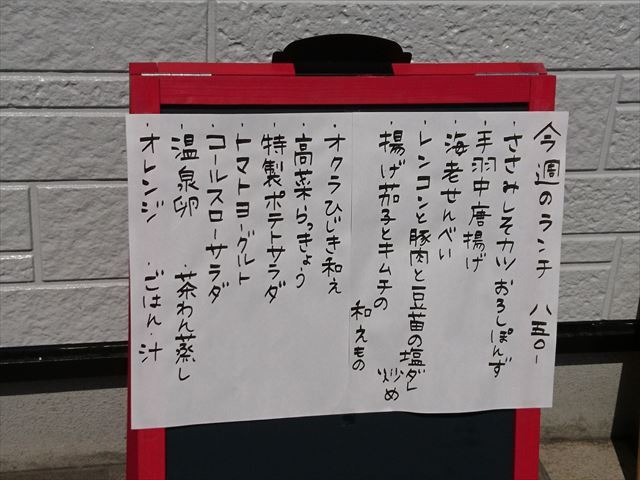 今週のランチ 八五〇-
・ささみしそカツおろしぽんず
・手羽中唐揚げ
・海老せんべい
・レンコンと豚肉と豆苗の塩ダレ炒め
・揚げ茄子とキムチの和えもの
・オクラひじき和え
・高菜・らっきょう
・特製ポテトサラダ
・トマトヨーグルト
・コールスローサラダ
・温泉卵 ・茶わん蒸し
・オレンジ ・ごはん・汁